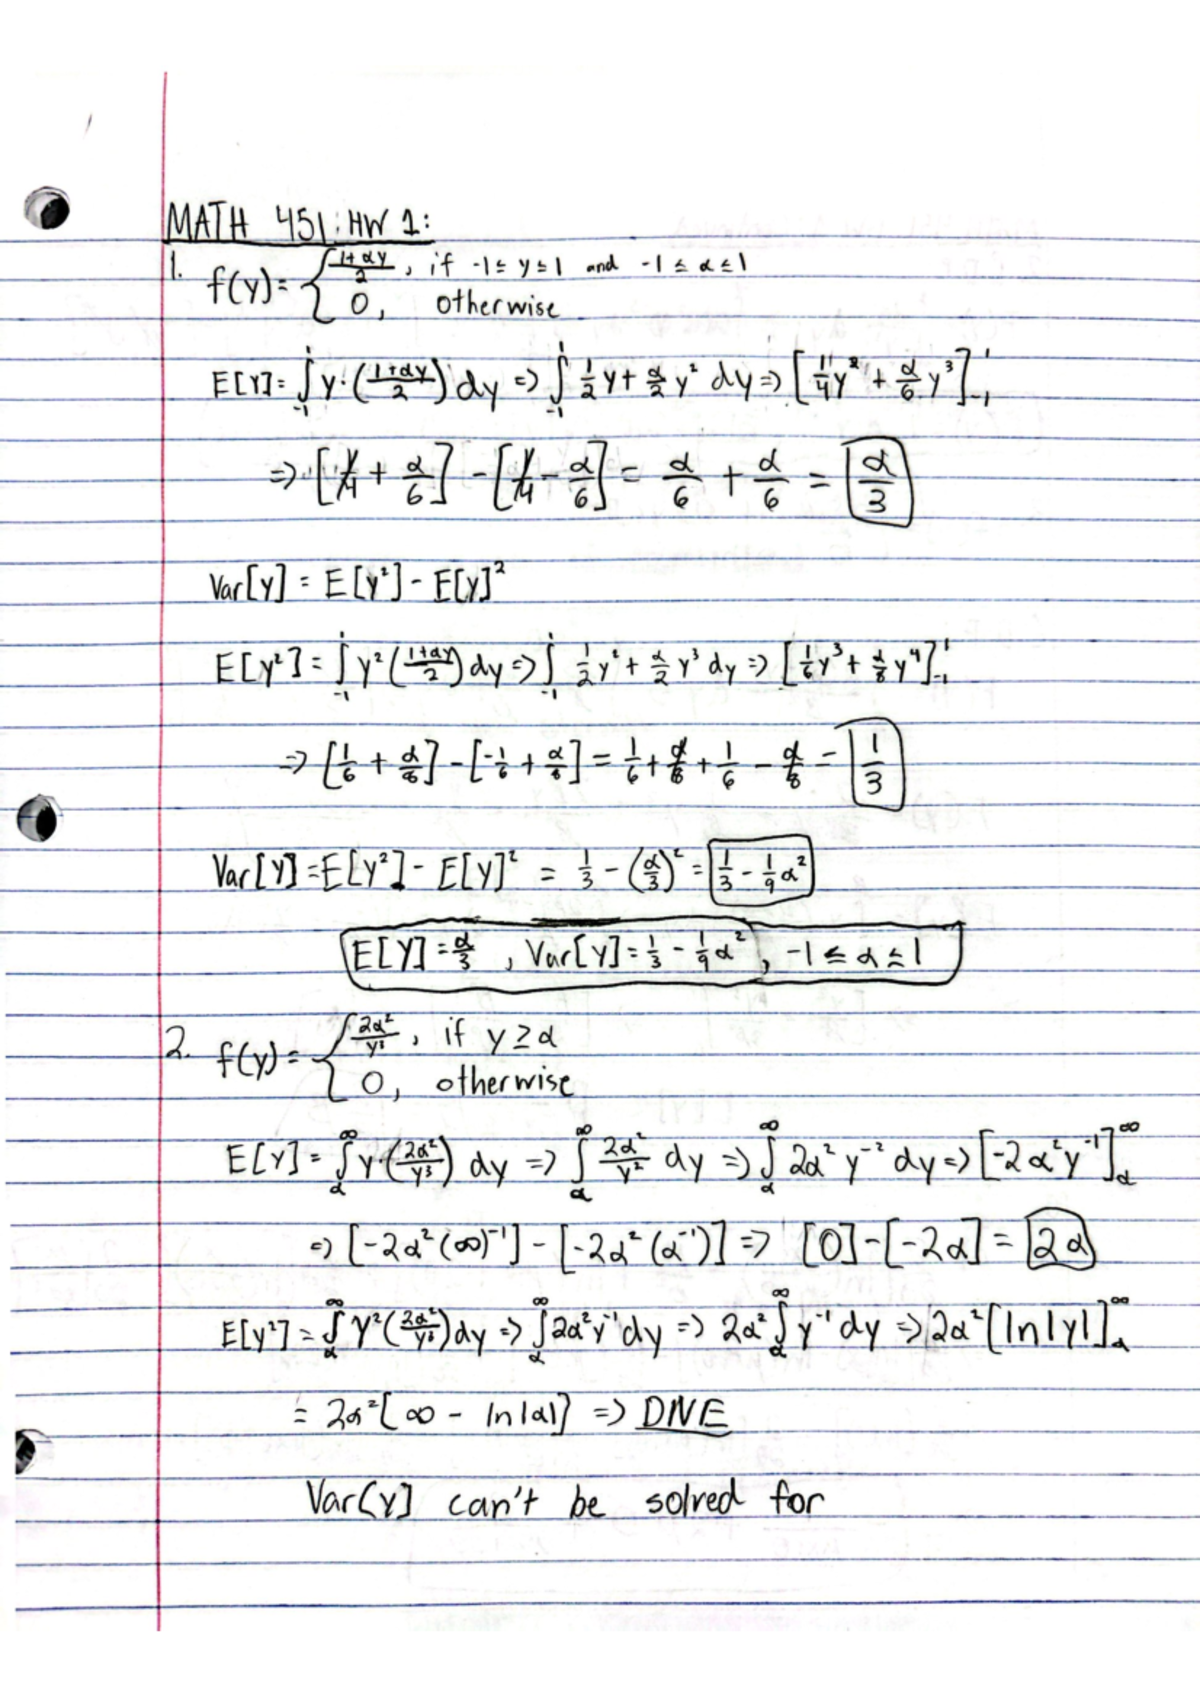 MATH 451 HW 1:
1. f(y) = { (1+αy)/2, if -1 ≤ y ≤ 1 and -1 ≤ α ≤ 1
0, otherwise
E[Y] = ∫_{-1}^{1} y·((1+αy)/2) dy => ∫_{-1}^{1} 1/2 y + α/2 y² dy => [1/4 y² + α/6 y³]_{-1}^{1}
=> [1/4 + α/6] - [1/4 - α/6] = α/6 + α/6 = α/3
Var[Y] = E[Y²] - E[Y]²
E[Y²] = ∫_{-1}^{1} y² ((1+αy)/2) dy => ∫_{-1}^{1} 1/2 y² + α/2 y³ dy => [1/6 y³ + α/8 y⁴]_{-1}^{1}
=> [1/6 + α/8] - [-1/6 + α/8] = 1/6 + α/8 + 1/6 - α/8 = 1/3
Var[Y] = E[Y²] - E[Y]² = 1/3 - (α/3)² = 1/3 - 1/9 α²
E[Y] = α/3, Var[Y] = 1/3 - 1/9 α², -1 ≤ α ≤ 1
2. f(y) = { 2α²/y³, if y ≥ α
0, otherwise
E[Y] = ∫_{α}^{∞} y (2α²/y³) dy => ∫_{α}^{∞} 2α²/y² dy => ∫_{α}^{∞} 2α² y⁻² dy => [-2α² y⁻¹]_{α}^{∞}
=> [-2α² (∞)⁻¹] - [-2α² (α⁻¹)] => [0] - [-2α] = 2α
E[Y²] = ∫_{α}^{∞} y² (2α²/y³) dy => ∫_{α}^{∞} 2α² y⁻¹ dy => 2α² ∫_{α}^{∞} y⁻¹ dy => 2α² [ln|y|]_{α}^{∞}
= 2α² [∞ - ln|α|] => DNE
Var[Y] can't be solved for